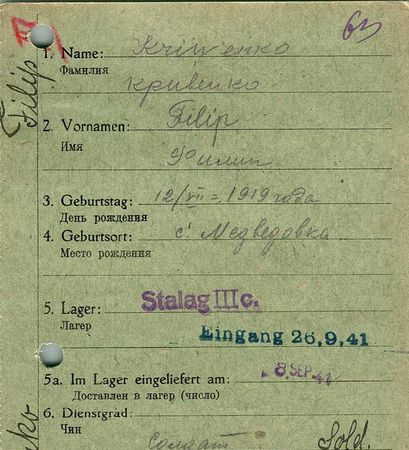 63
Filip
1. Name: Kriwenko
Фамилия
Кривенко
2. Vornamen: Filip
Имя
Филип
3. Geburtstag: 12/VII - 1919 года
День рождения
4. Geburtsort: с. Медведовка
Место рождения
5. Lager: Stalag III C.
Лагер
Eingang 26.9.41
5a. Im Lager eingeliefert am: 8. SEP. 41
Доставлен в лагер (число)
6. Dienstgrad:
Чин
Солдат Sold.
ko